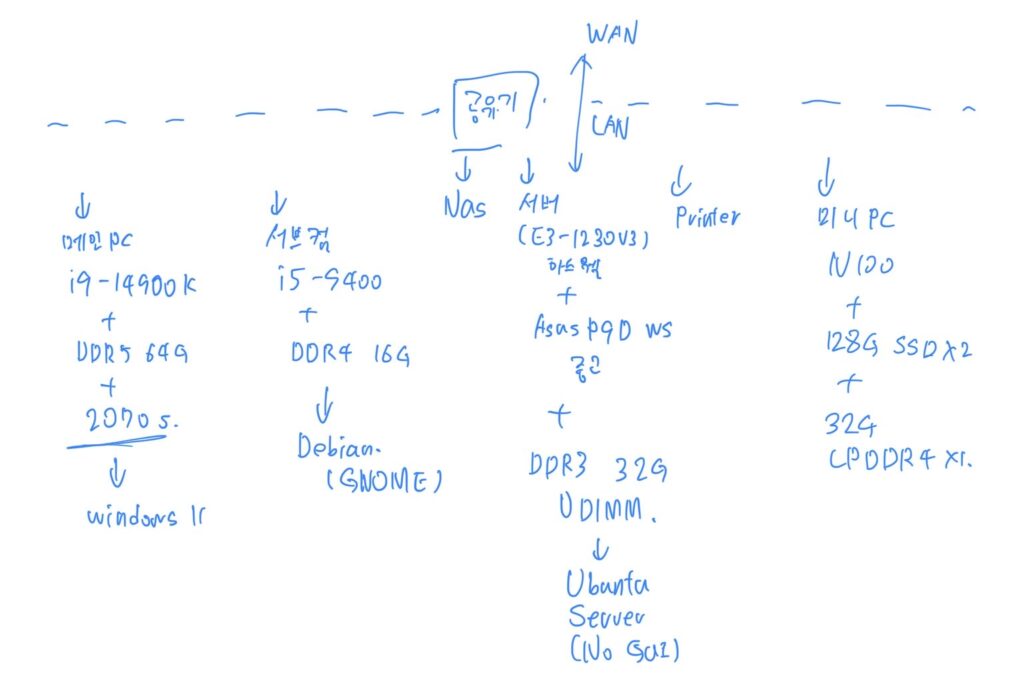 WAN
공유기
LAN
메인PC
i9-14900K
+
DDR5 64G
+
2070s.
Windows 11
서브컴
i5-9400
+
DDR4 16G
Debian.
(GNOME)
Nas
서버
(E3-1230V3)
하스웰
+
Asus P9D WS
중고
+
DDR3 32G
UDIMM.
Ubuntu
Server
(No GUI)
Printer
미니PC
N100
+
128G SSDX2
+
32G
LPDDR4 X1.